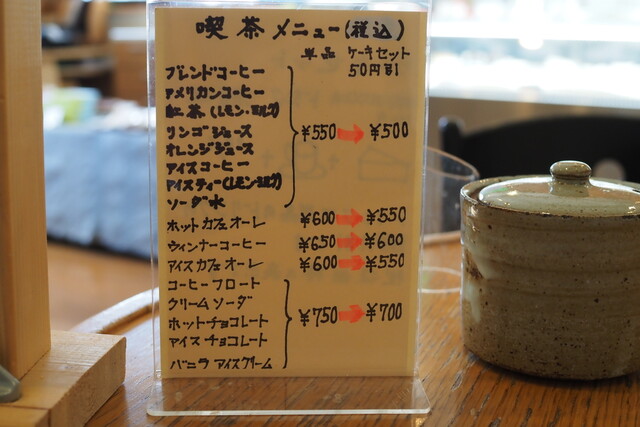 喫茶メニュー(税込)
単品 ケーキセット
50円引
ブレンドコーヒー
アメリカンコーヒー
紅茶(レモン・ミルク)
リンゴジュース ¥550 ➡ ¥500
オレンジジュース
アイスコーヒー
アイスティー(レモン・ミルク)
ソーダ水
ホットカフェオーレ ¥600 ➡ ¥550
ウィンナーコーヒー ¥650 ➡ ¥600
アイスカフェオーレ ¥600 ➡ ¥550
コーヒーフロート
クリームソーダ
ホットチョコレート ¥750 ➡ ¥700
アイスチョコレート
バニラアイスクリーム